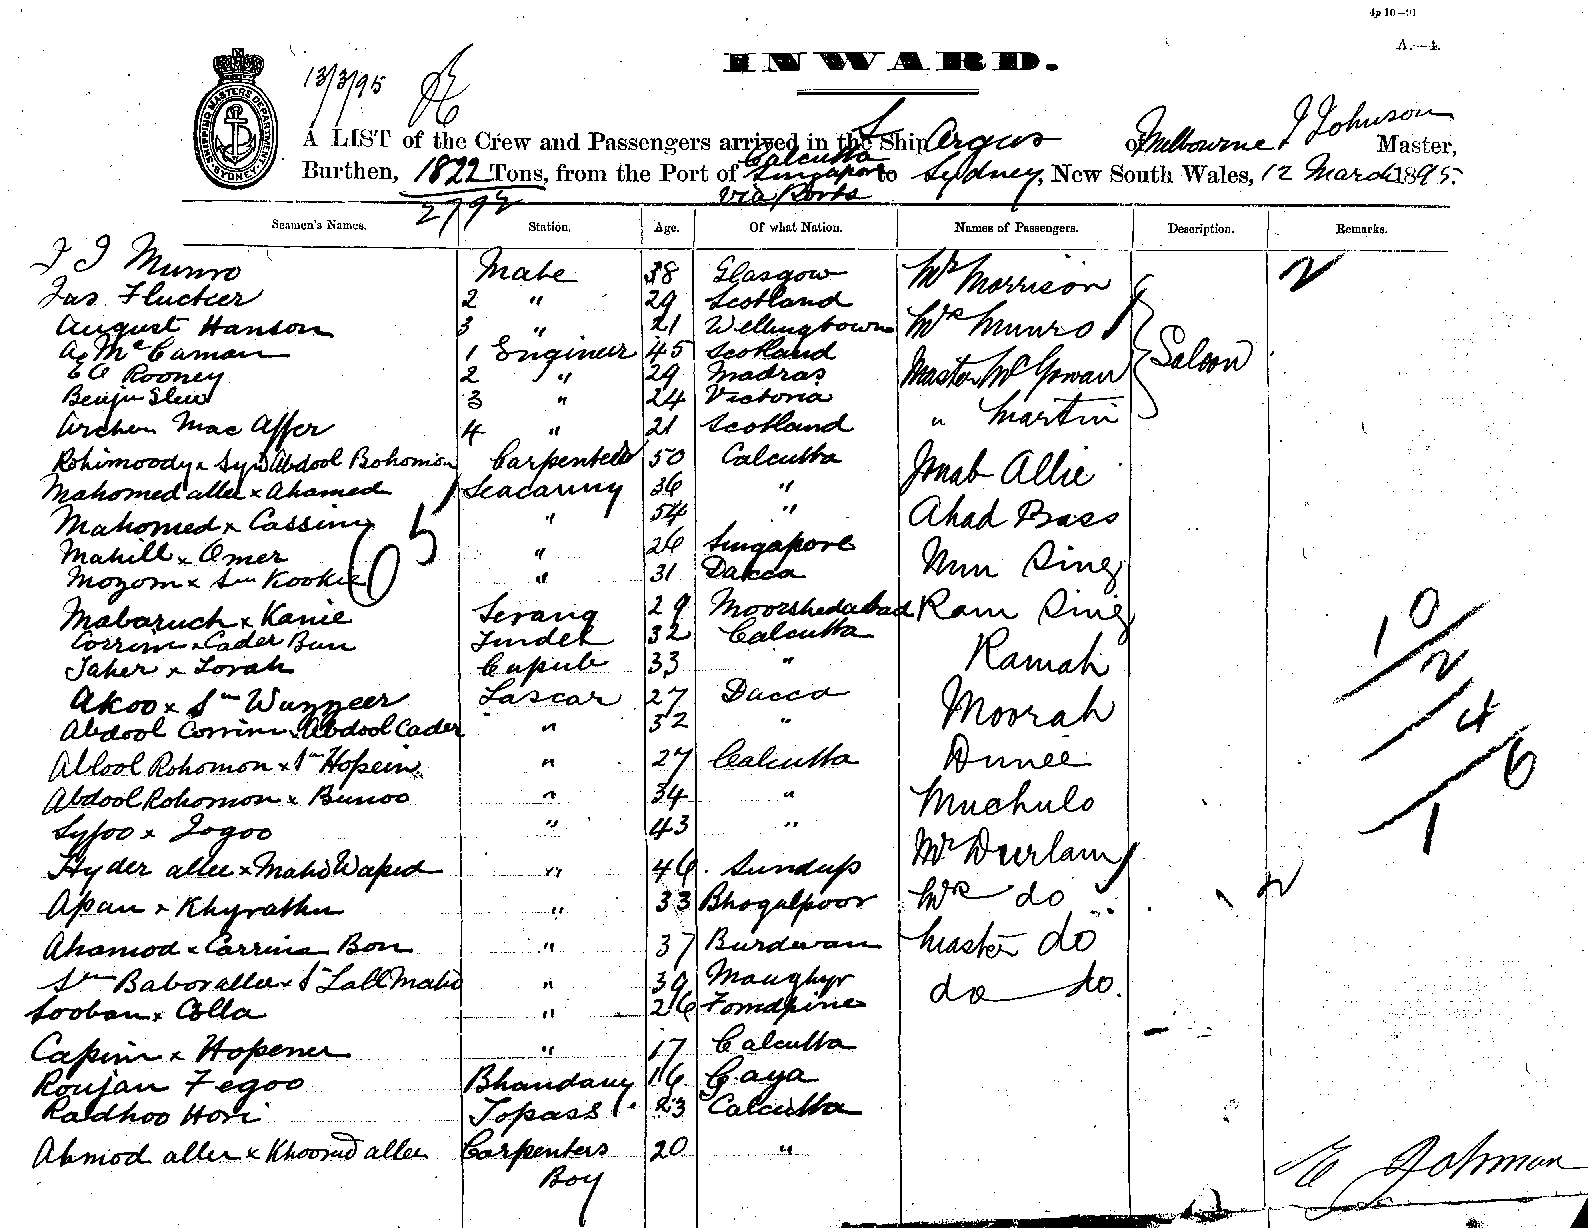 4p 10—91
A.—4.
13/3/95
INWARD.
SHIPPING MASTERS DEPARTMENT SYDNEY
A LIST of the Crew and Passengers arrived in the Ship Argus of Melbourne J Johnson Master,
Burthen, 1822 Tons, from the Port of Calcutta Singapore via Ports to Sydney, New South Wales, 12 March 1895.
2792
Seamen's Names. Station. Age. Of what Nation. Names of Passengers. Description. Remarks.
J J Munro Mate 38 Glasgow Mr Morrison 2
Jas Fluckier 2 " 29 Scotland
August Hanson 3 " 21 Mrs Munro Saloon
A McCaman 1 Engineer 45 Scotland
E A Rooney 2 " 29 Madras Master McGowan
Benjn 3 " 24 Victoria
Archen Mac Affer 4 " 21 Scotland " Martin
Abdool Carpenter 50 Calcutta
Mahomed allee x Ahamed Seacunny 36 " Allie
Mahomed x Cassim " 54 " Ahad Bass
Mahill x Omer " 26 Singapore Sing
Mozom x Kookie " 31 Dacca
Mabaruch x Kanie Serang 29 Moorshedabad Ram Sing
Corrim x Cader Bun Tindel 32 Calcutta
Jaher x Lorah 33 " Ramah
Akoo x Sm Wuzzeer Lascar 27 Dacca
Abdool Corrim Abdool Cader " 32 " Moorah
Abdool Rohomon x Hopein " 27 Calcutta Dunee
Abdool Rohomon x Bunoo " 34 " Muchulo
Syfoo x Jogoo " 43 "
Hyder allee x Waped " 46 Sundup Mr Durlam
Apan x Khyrathu " 33 Bhogulpoor Mrs do 2
Ahamod x Carrim Bon " 37 Burdwan Master do
Sm Babor allee x Lall " 39 Monghyr do do.
Sooban x Colla " 26
Capim x Hopener " 17 Calcutta
Roujan Fegoo Bhandary 16 Gaya
Radhoo Hori Topass 23 Calcutta
Ahmod allee x allee Carpenters 20 "
Boy
10
2
4
6
1
Johnson